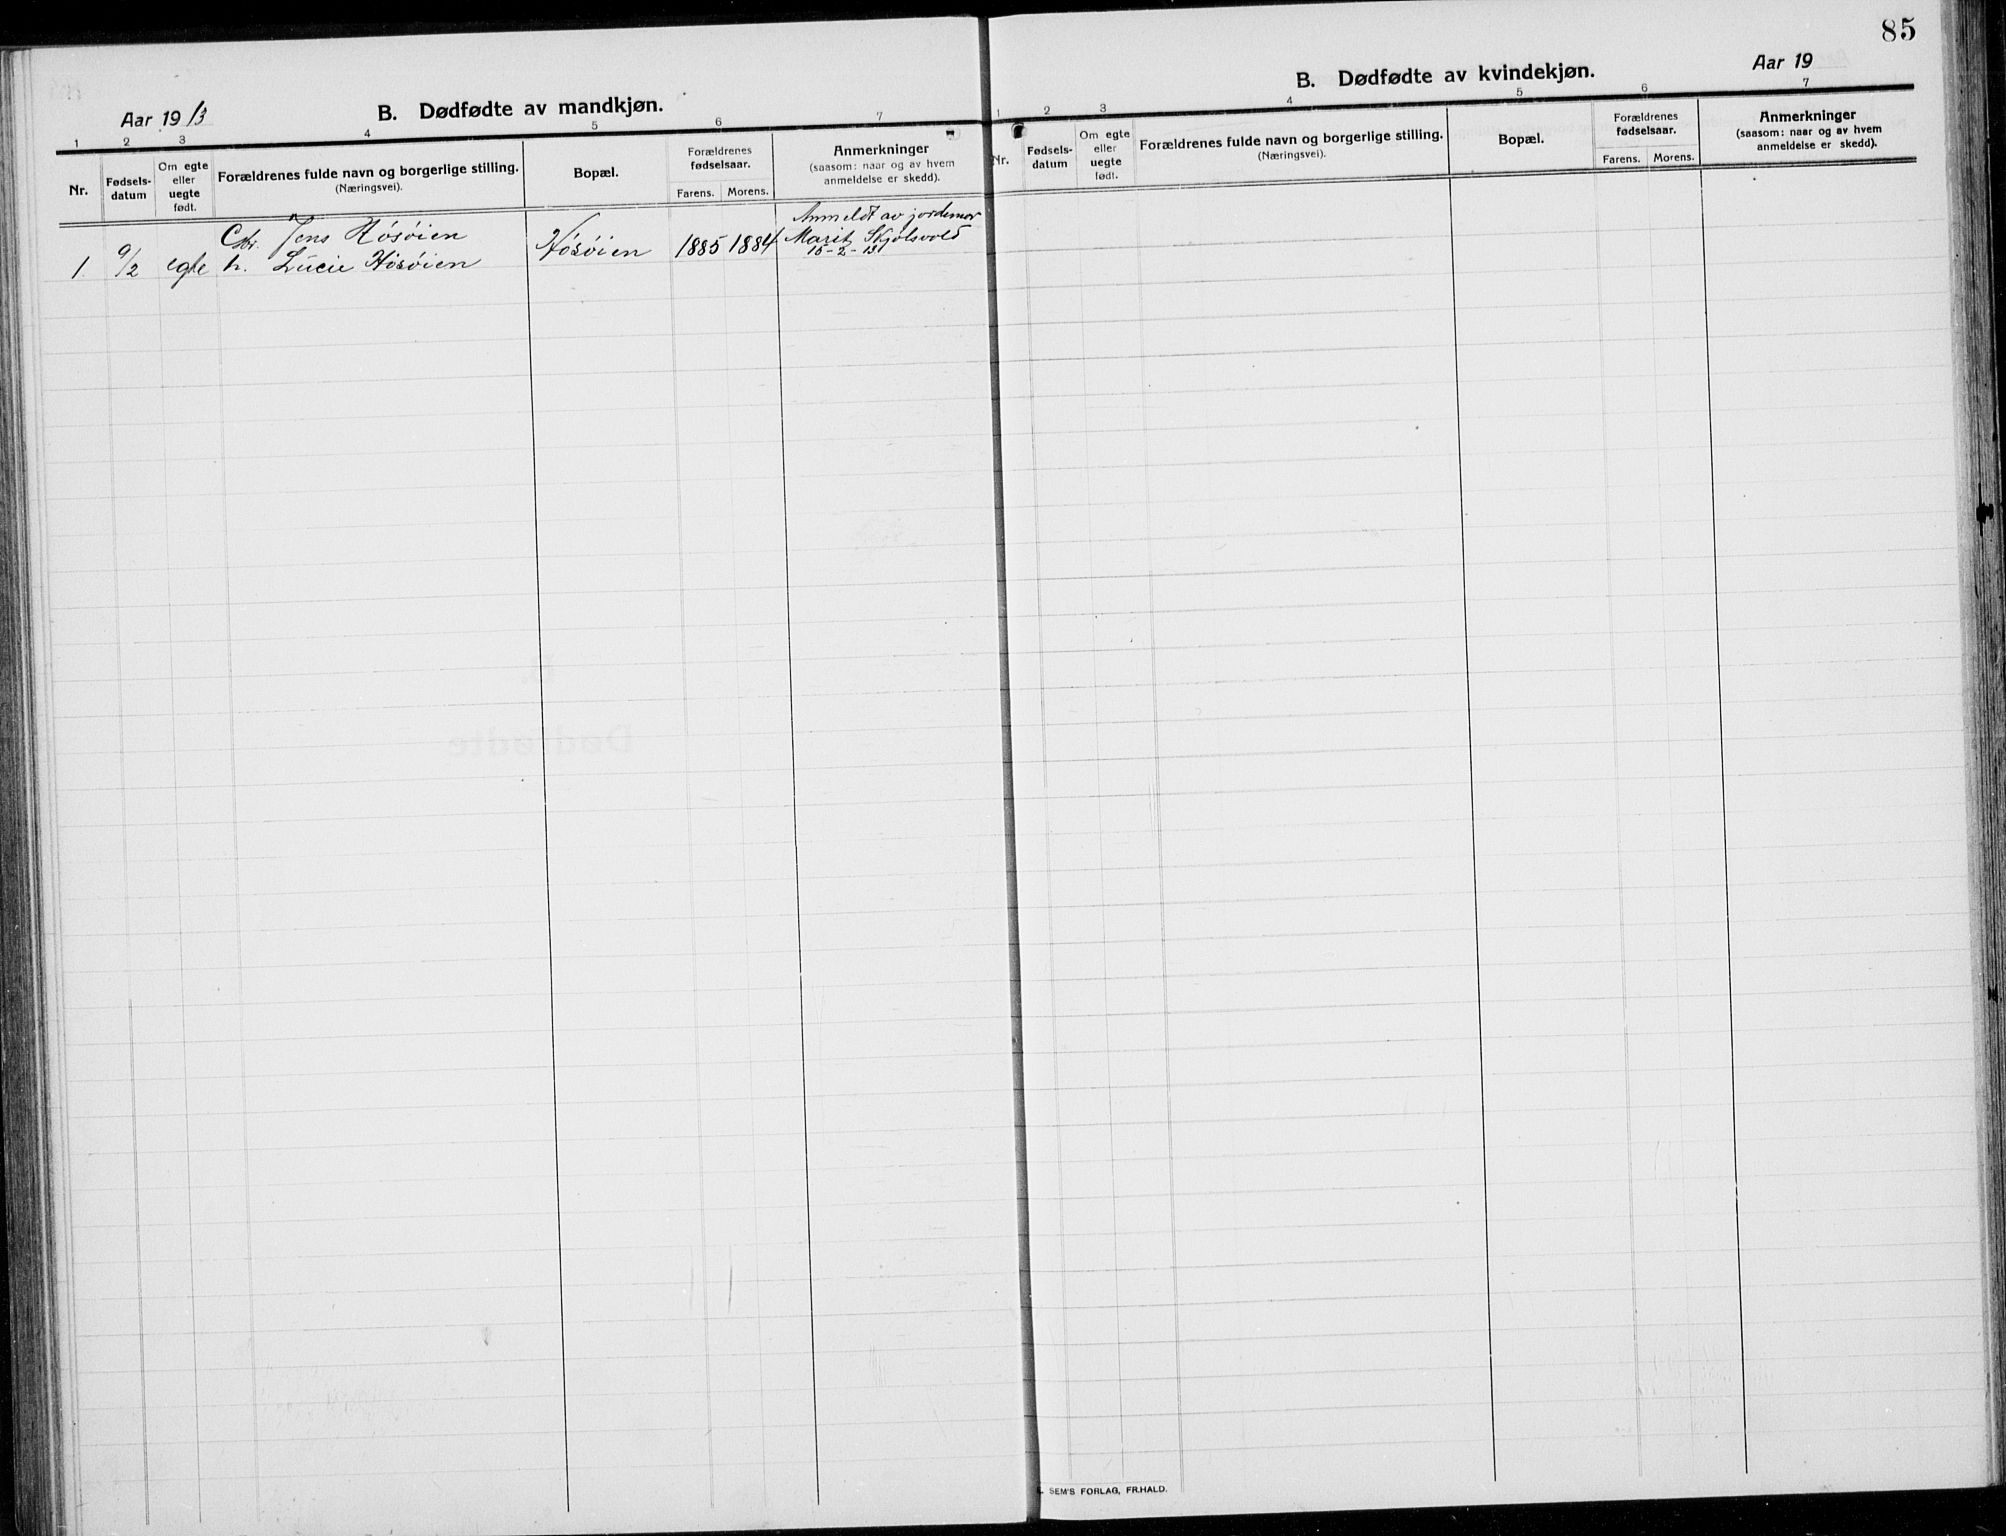 85
Aar 1913
B. Dødfødte av mandkjøn.
1 2 3 4 5 6 7
Nr.
Fødsels-
datum
Om egte
eller
uegte
født.
Forældrenes fulde navn og borgerlige stilling.
(Næringsvei).
Bopæl.
Forældrenes
fødselsaar.
Farens. Morens.
Anmerkninger
(saasom: naar og av hvem
anmeldelse er skedd).
Jens Hósóien
Anmeldt av jordemor
1. 9/2 egte h. Lucie Hósóien Hósóien 1885 1884 Marit Skjølsvold
15-2-13
B. Dødfødte av kvindekjøn.
Aar 19
1 2 3 4 5 6 7
Nr.
Fødsels-
datum
Om egte
eller
uegte
født.
Forældrenes fulde navn og borgerlige stilling.
(Næringsvei).
Bopæl.
Forældrenes
fødselsaar.
Farens. Morens.
Anmerkninger
(saasom: naar og av hvem
anmeldelse er skedd).
SEM'S FORLAG, FR.HALD.